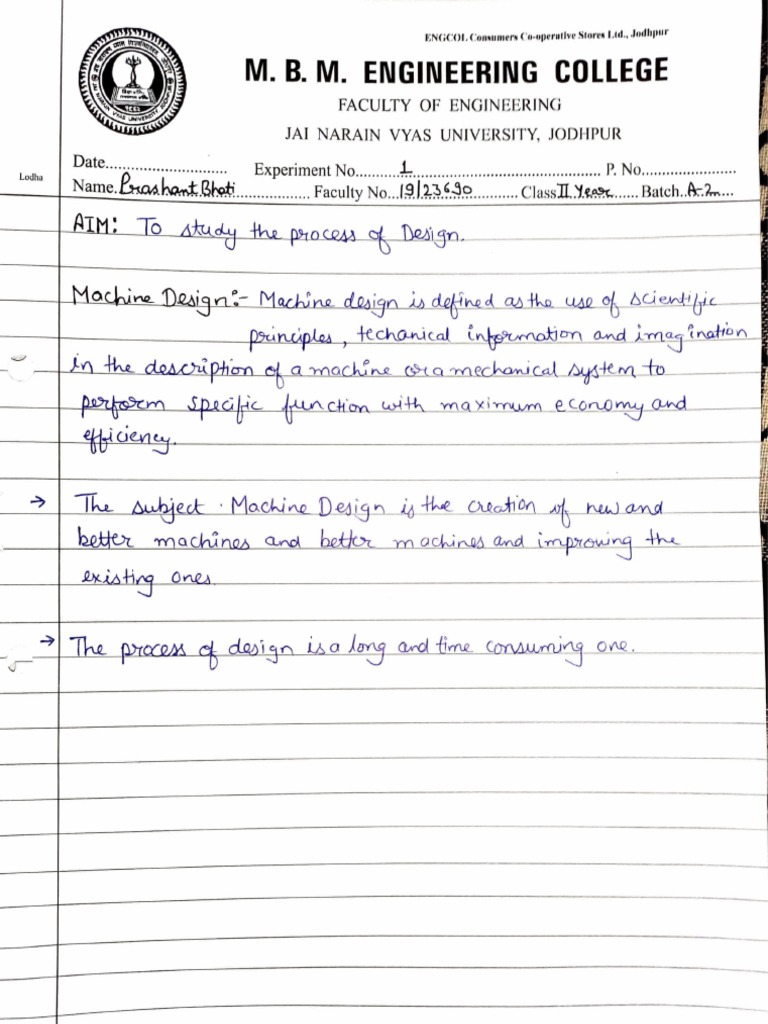 ENGCOL Consumers Co-operative Stores Ltd., Jodhpur
M. B. M. ENGINEERING COLLEGE
FACULTY OF ENGINEERING
JAI NARAIN VYAS UNIVERSITY, JODHPUR
Lodha
Date............................ Experiment No..........1............................................ P. No......................
Name.Prashant Bhati.................. Faculty No...19/23690........... Class II Year...... Batch..A-2....
AIM: To study the process of Design.
Machine Design:- Machine design is defined as the use of scientific
principles, techanical information and imagination
in the description of a machine or a mechanical system to
perform specific function with maximum economy and
efficiency.
→ The subject Machine Design is the creation of new and
better machines and better machines and improving the
existing ones.
→ The process of design is a long and time consuming one.